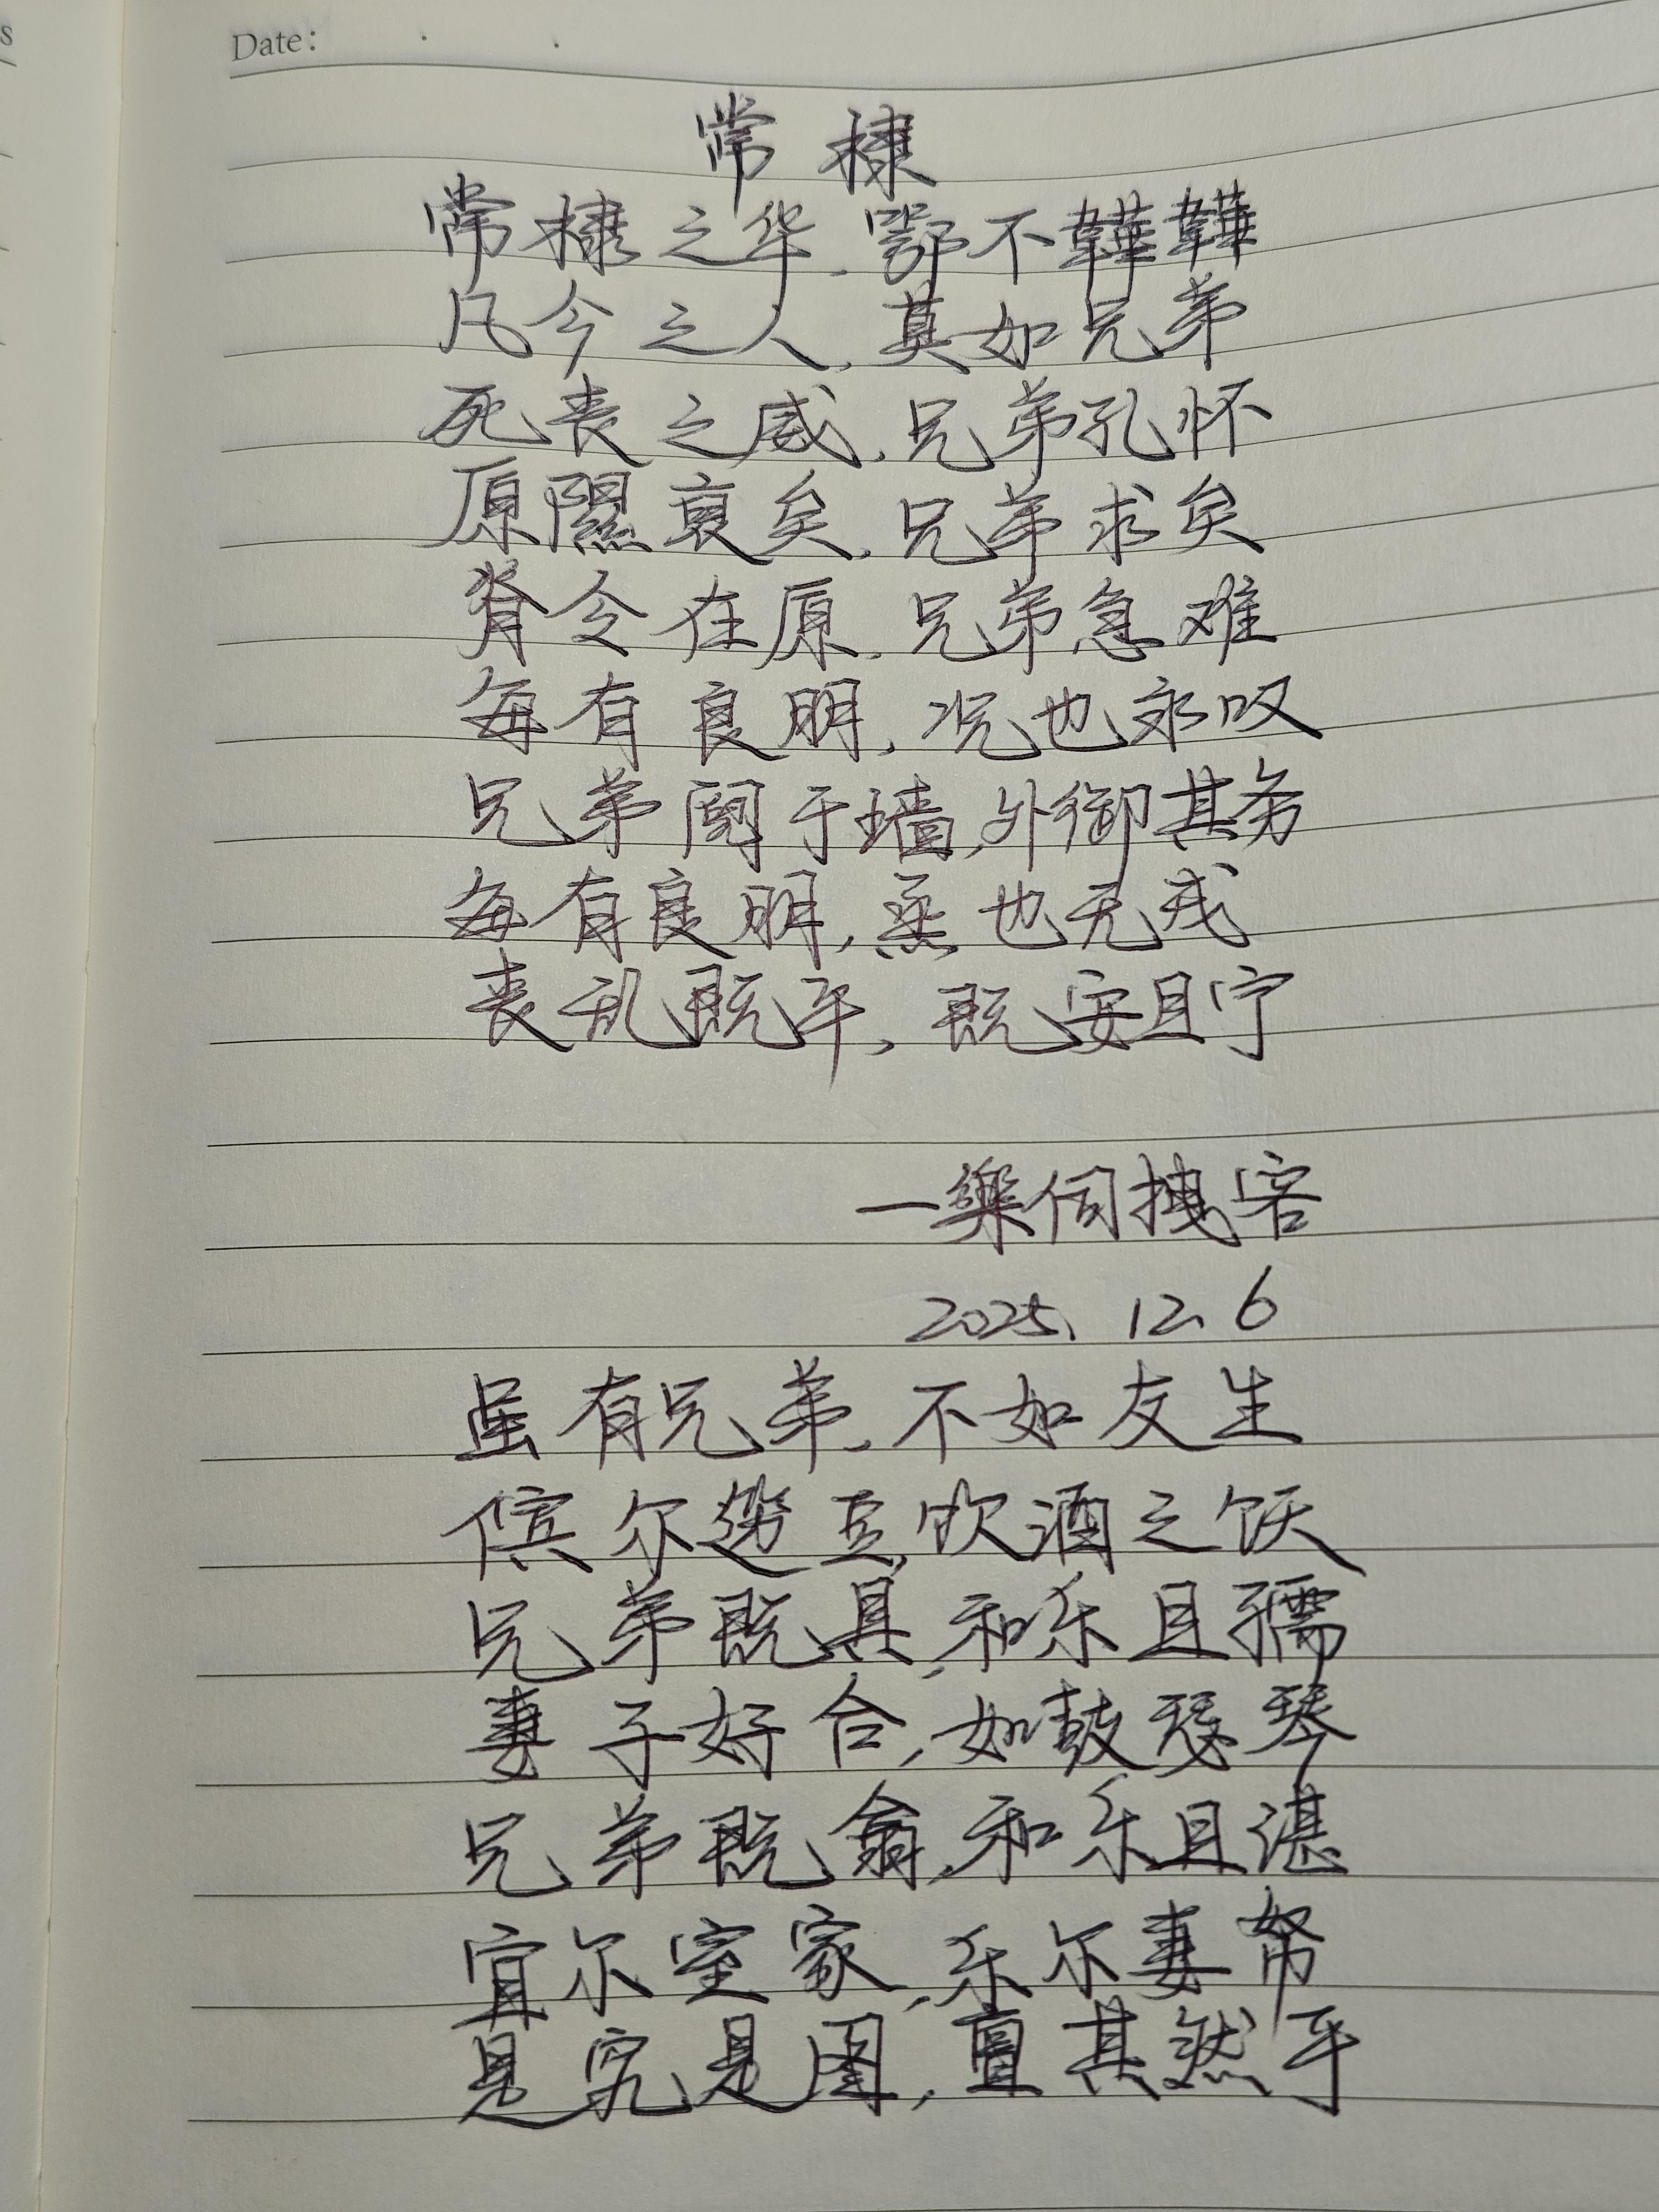 Date:
常棣
常棣之华,鄂不韡韡
凡今之人,莫如兄弟
死丧之威,兄弟孔怀
原隰裒矣,兄弟求矣
脊令在原,兄弟急难
每有良朋,况也永叹
兄弟阋于墙,外御其务
每有良朋,烝也无戎
丧乱既平,既安且宁
一樂伺拽客
2025.12.6
虽有兄弟,不如友生
傧尔笾豆,饮酒之饫
兄弟既具,和乐且孺
妻子好合,如鼓瑟琴
兄弟既翕,和乐且湛
宜尔室家,乐尔妻帑
是究是图,亶其然乎